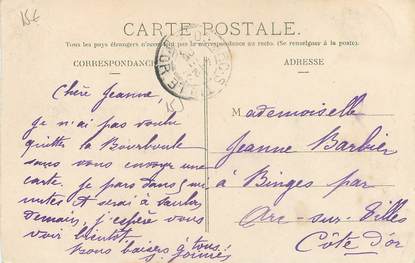 15€
CARTE POSTALE.
Tous les pays étrangers n'acceptent pas la correspondance au recto. (Se renseigner à la poste).
CORRESPONDANCE
Chère Jeanne,
Je n'ai pas voulu
quitter la Bourboule
sans vous envoyer une
carte. Je pars dans
demain, j'espère vous
voir bientôt.
Bons baisers à tous.
ADRESSE
Mademoiselle
Jeanne Barbier
à Binges par
Arc-sur-Tilles
Côte d'or